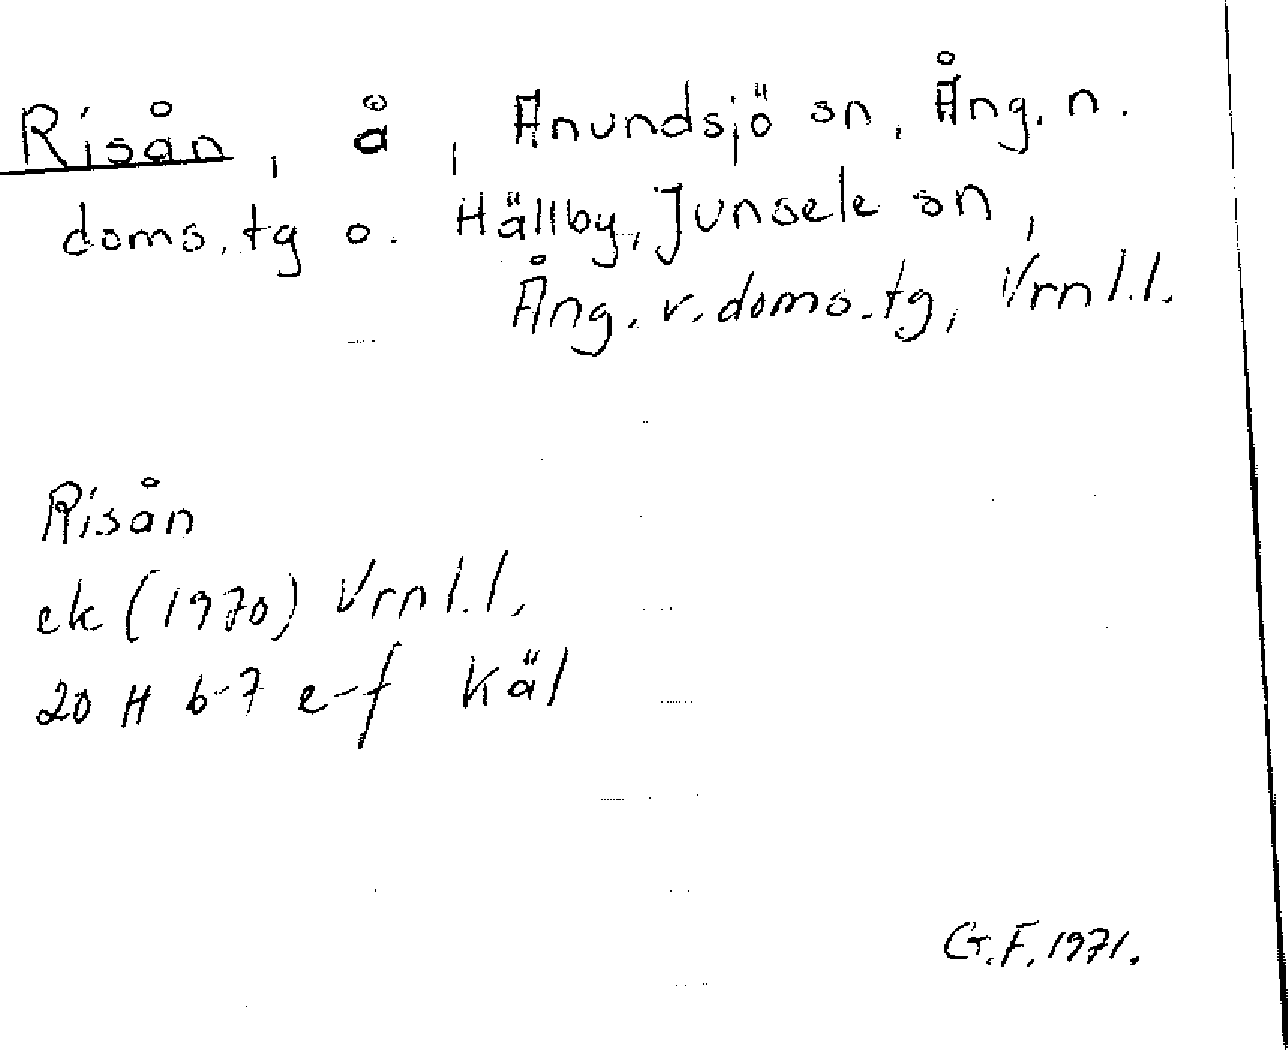 Risån, å, Anundsjö sn, Ång. n.
doms. tg o. Hällby, Junsele sn,
Ång. v. doms. tg, Vrnl.l.
Risån
ek (1970) Vrnl.l.
20 H 6-7 e-f Käl
G.F. 1971.